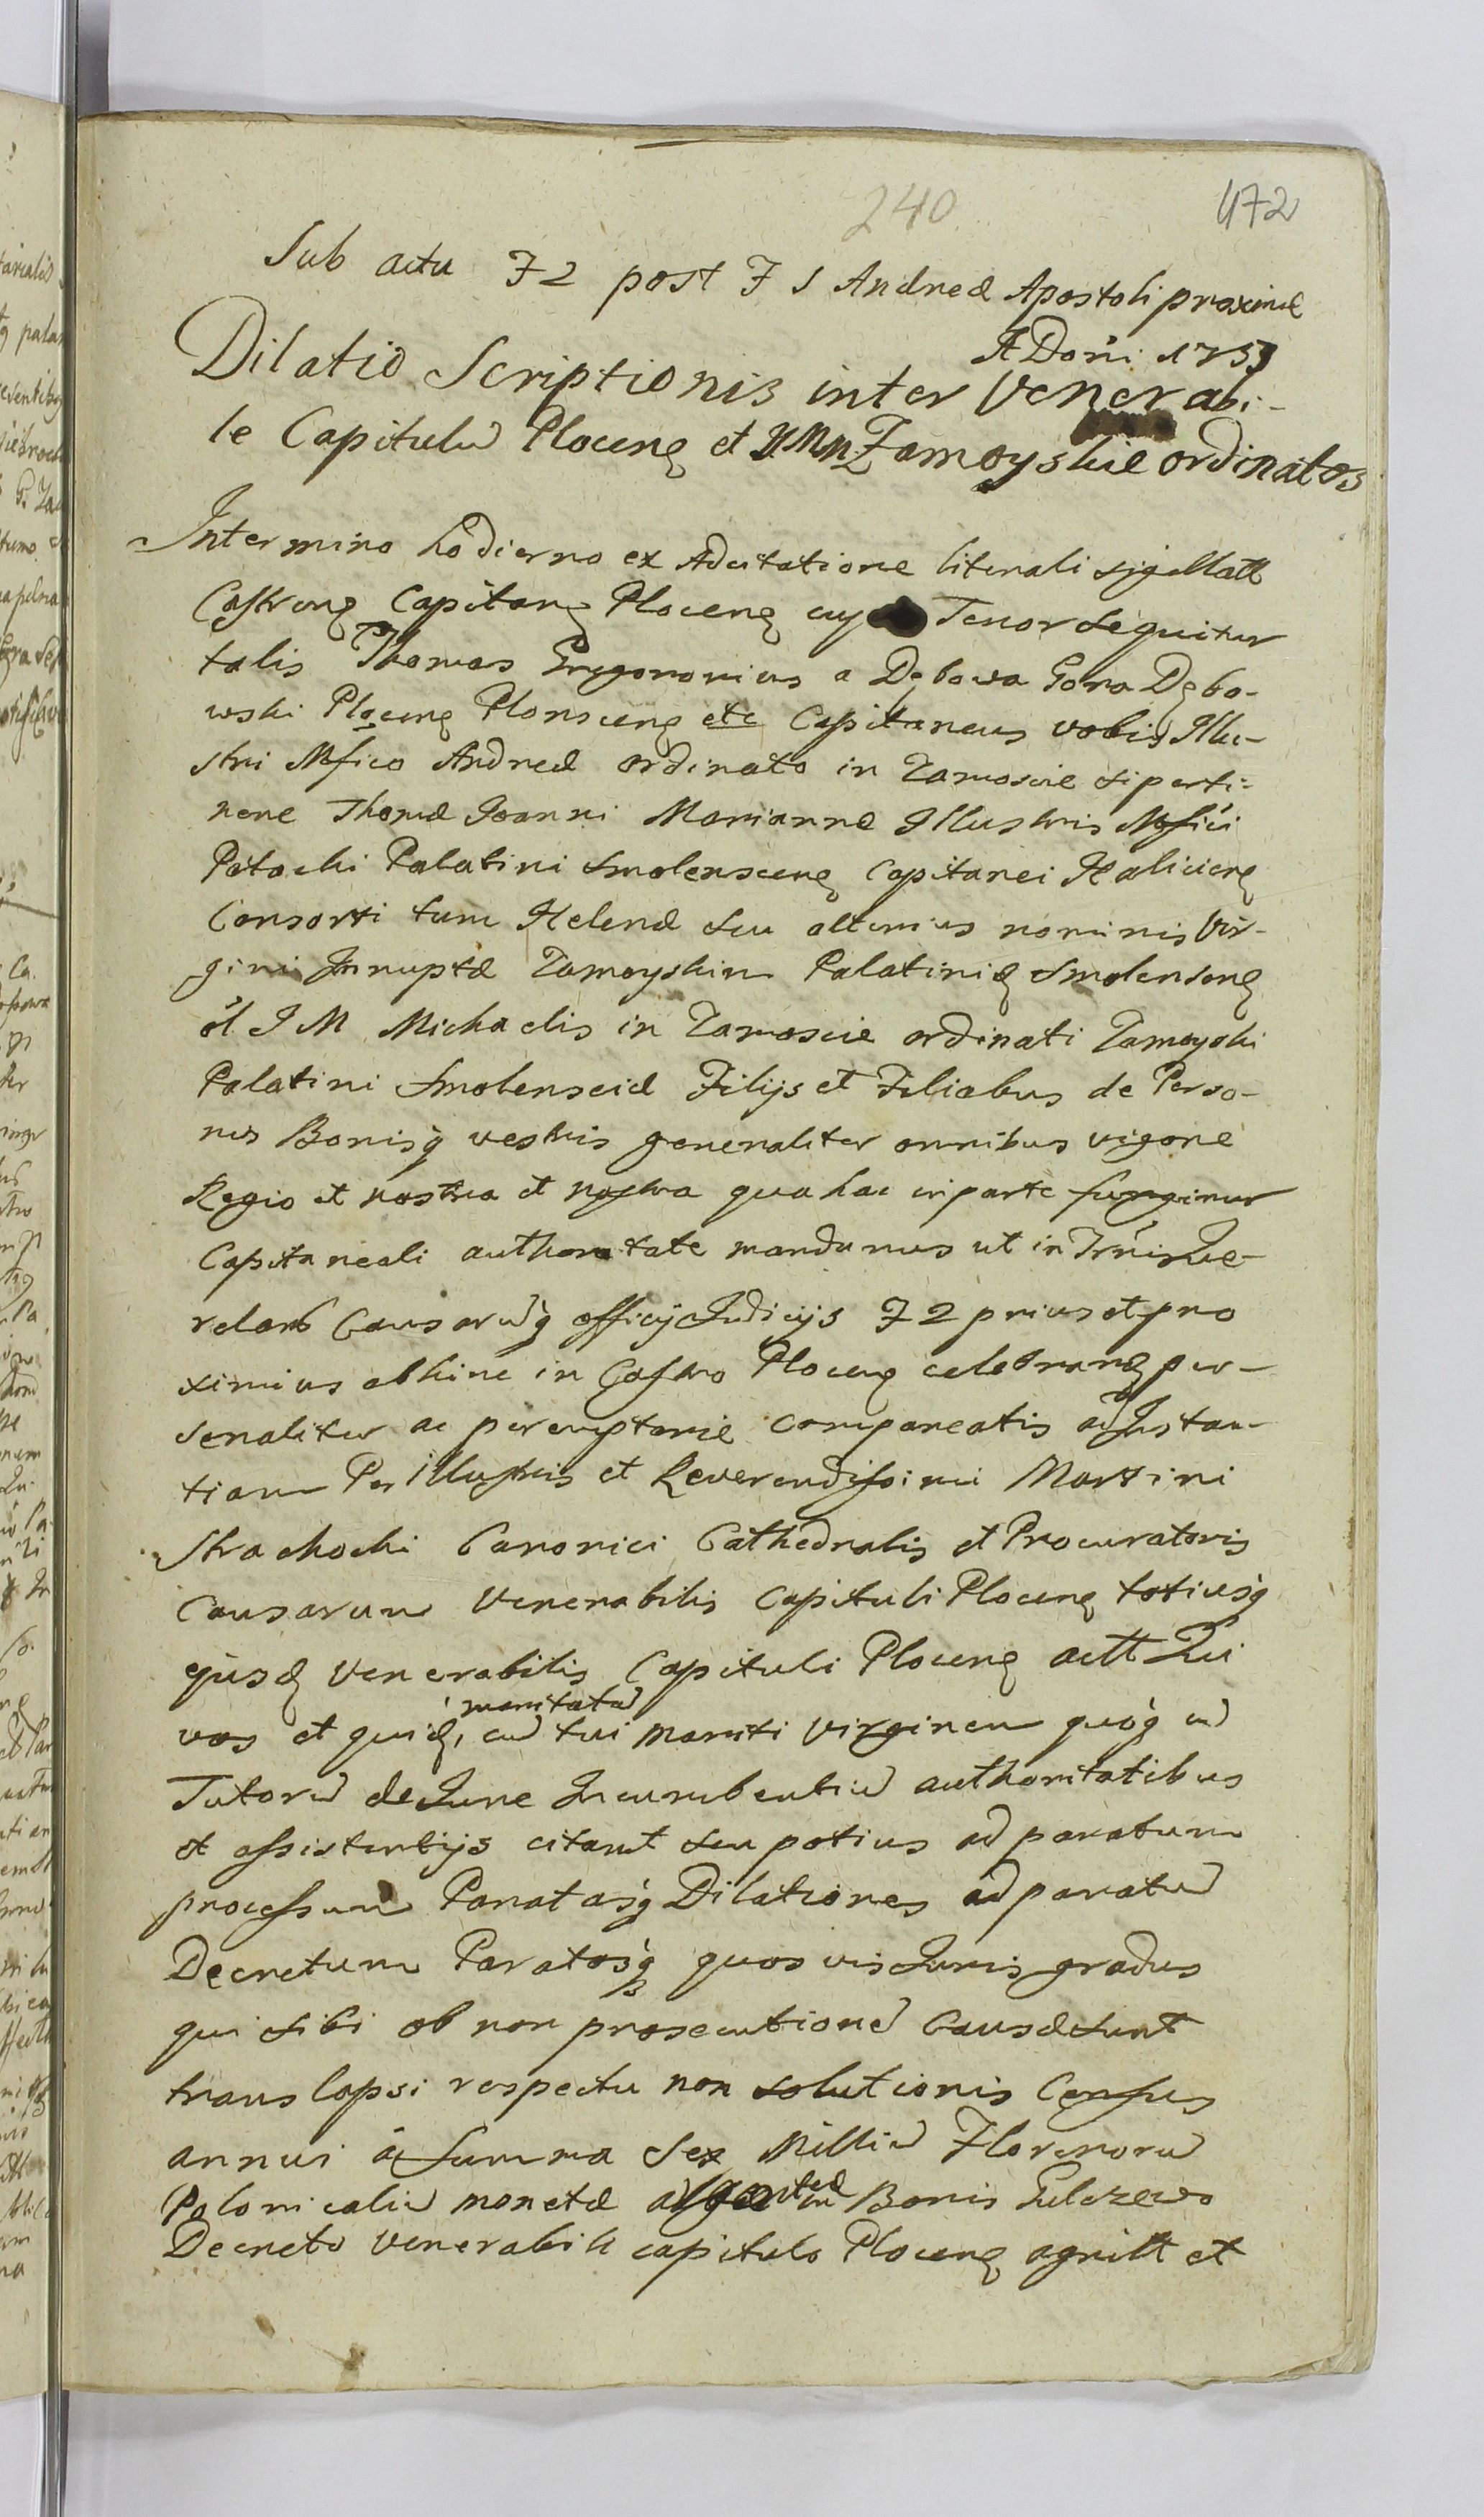 240
472
Sub actu F 2 post F S Andreæ Apostoli proximæ
A Dñi: 1753
Dilatio Scriptionis inter Venerabi-
le Capitulũ Plocenꝫ et Zamoyskie ordinatos
In termino hodierno ex Adcitatione literali sigillatt
Castrenꝫ Capitanꝫ Plocenꝫ cuj Tenor sequitur
talis Thomas Gregorovius a Dębowa Gora Dębo-
wski Plocenꝫ Plonscenꝫ etc Capitaneus vobis Illu-
stri Mfico Andreæ ordinato in Zamoscie si perti-
nere Thomæ Joanni Mariannæ Illustris Mfici
Potocki Palatini Smolenscenꝫ Capitanei Halicienꝫ
Consorti tum Helenæ seu alterius nominis Vir-
gini Innuptæ Zamoyskim Palatiniꝫ Smolensenꝫ
ol I M Michaelis in Zamoscie ordinati Zamoyski
Palatini Smolensciæ Filijs et Filiabus de Perso-
nis Bonisq̃ vestris generaliter omnibus vigore
Regio et nostra et nostra qua hac in parte fungimur
Capitaneali authoritate mandamus ut in Trñis Que-
relarũ Causarũq̃ officij Judicijs F 2 prius et pro
ximius abhinc in Castro Plocenꝫ celebranꝫ per-
sonaliter ac peremptorie compareatis ad Instan-
tiam Per illustris et Reverendissimi Martini
Strachocki Canonici Cathedralis et Procuratoris
Causarum Venerabilis Capituli Plocenꝫ totiusq̃
ejusdꝫ Venerabilis Capituli Plocenꝫ actt Qui
maritatã
vos et quidꝫ, cũ tui mariti virginem quoq̃ cũ
Tutorũ de Jure Incumbentiũ authoritatibus
et assistentijs citant seu potius ad paratum
processum Paratasq̃ Dilationes ad paratũ
Decretum Paratosq̃ quosvis Juris gradus
qui sibi ob non prosecutionẽ Causæ sunt
translapsi respectu non solutionis Census
annui à Summa Sex Milliũ Florenorũ
Polonicaliũ monetæ in Bonis Gulczewo
Decreto Venerabili capitulo Plocenꝫ agnitt et